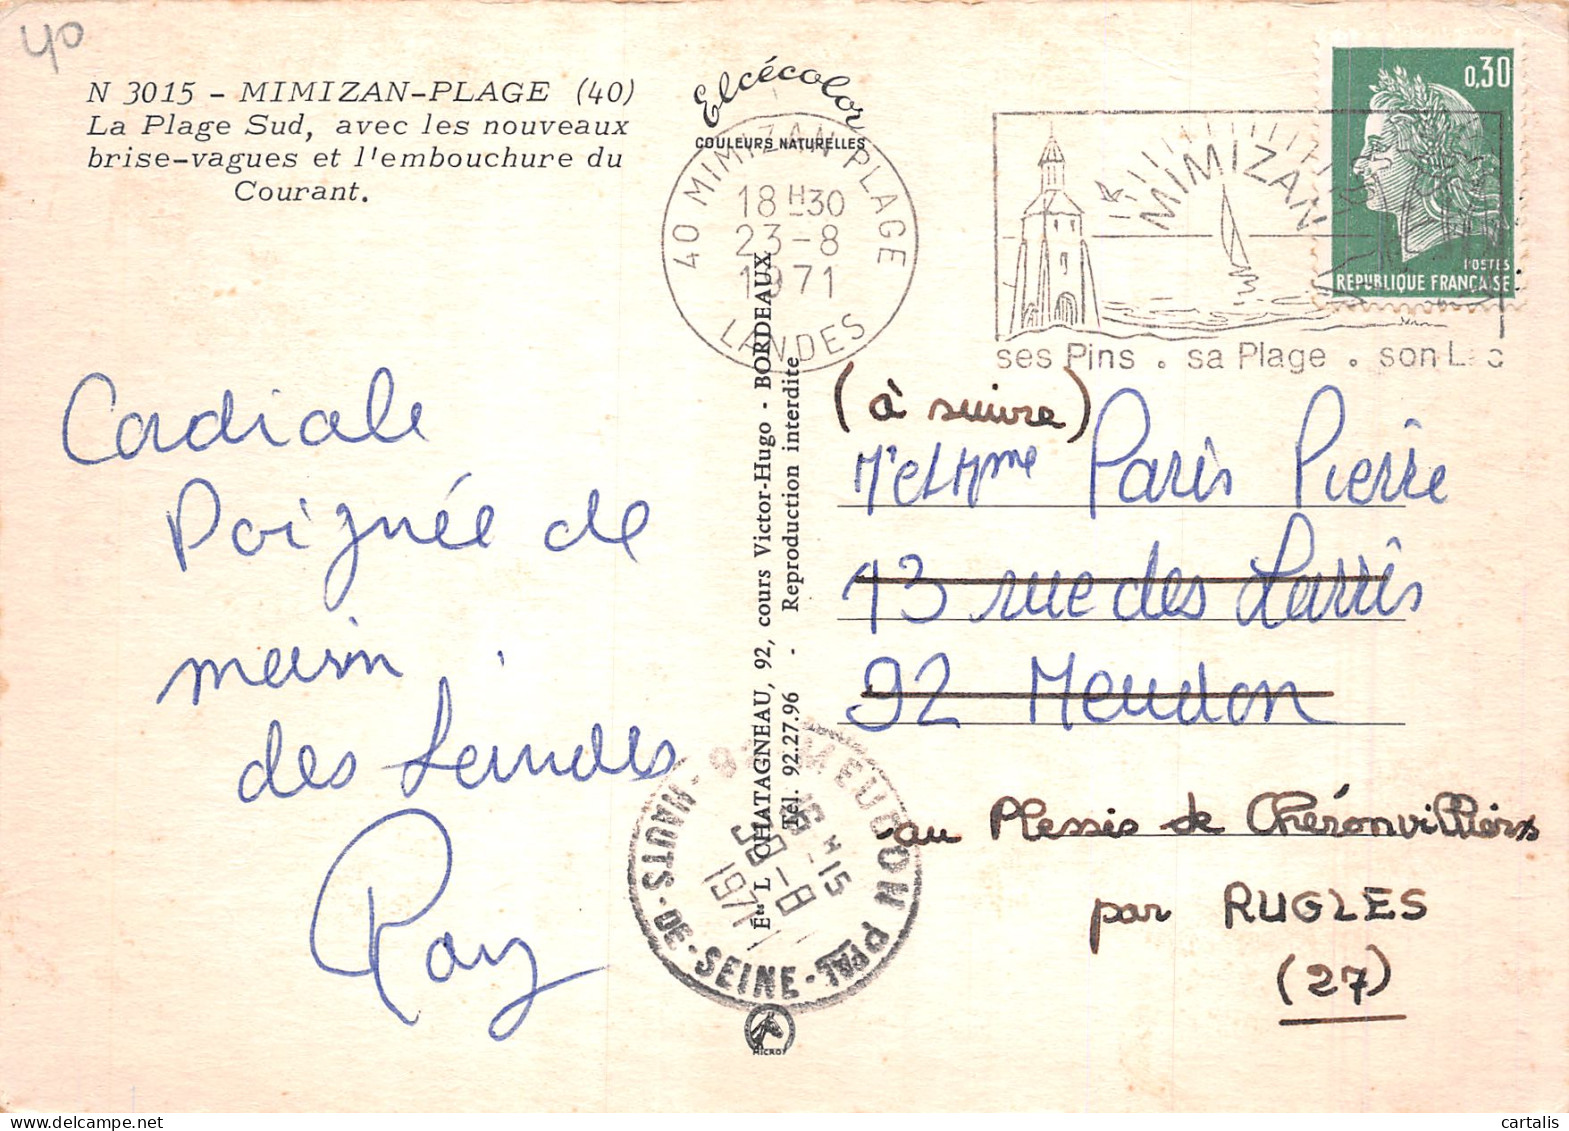 40
N 3015 - MIMIZAN-PLAGE (40)
La Plage Sud, avec les nouveaux
brise-vagues et l'embouchure du
Courant.
Elcécolor
COULEURS NATURELLES
40 MIMIZAN PLAGE
18H30
23-8
1971
LANDES
MIMIZAN
ses Pins . sa Plage . son Lac
0,30
POSTES
REPUBLIQUE FRANÇAISE
Cordiale
Poignée de
main
des Landes
Ray
Éts L. CHATAGNEAU, 92, cours Victor-Hugo - BORDEAUX
Tél. 92.27.96 - Reproduction interdite
(à suivre)
Mr et Mme Paris Pierre
43 rue des Larris
92 Meudon
au Plessis de Chéronvilliers
par RUGLES
(27)
MEUDON PPAL
16H15
-8
1971
HAUTS-DE-SEINE
MICRO
cartalis